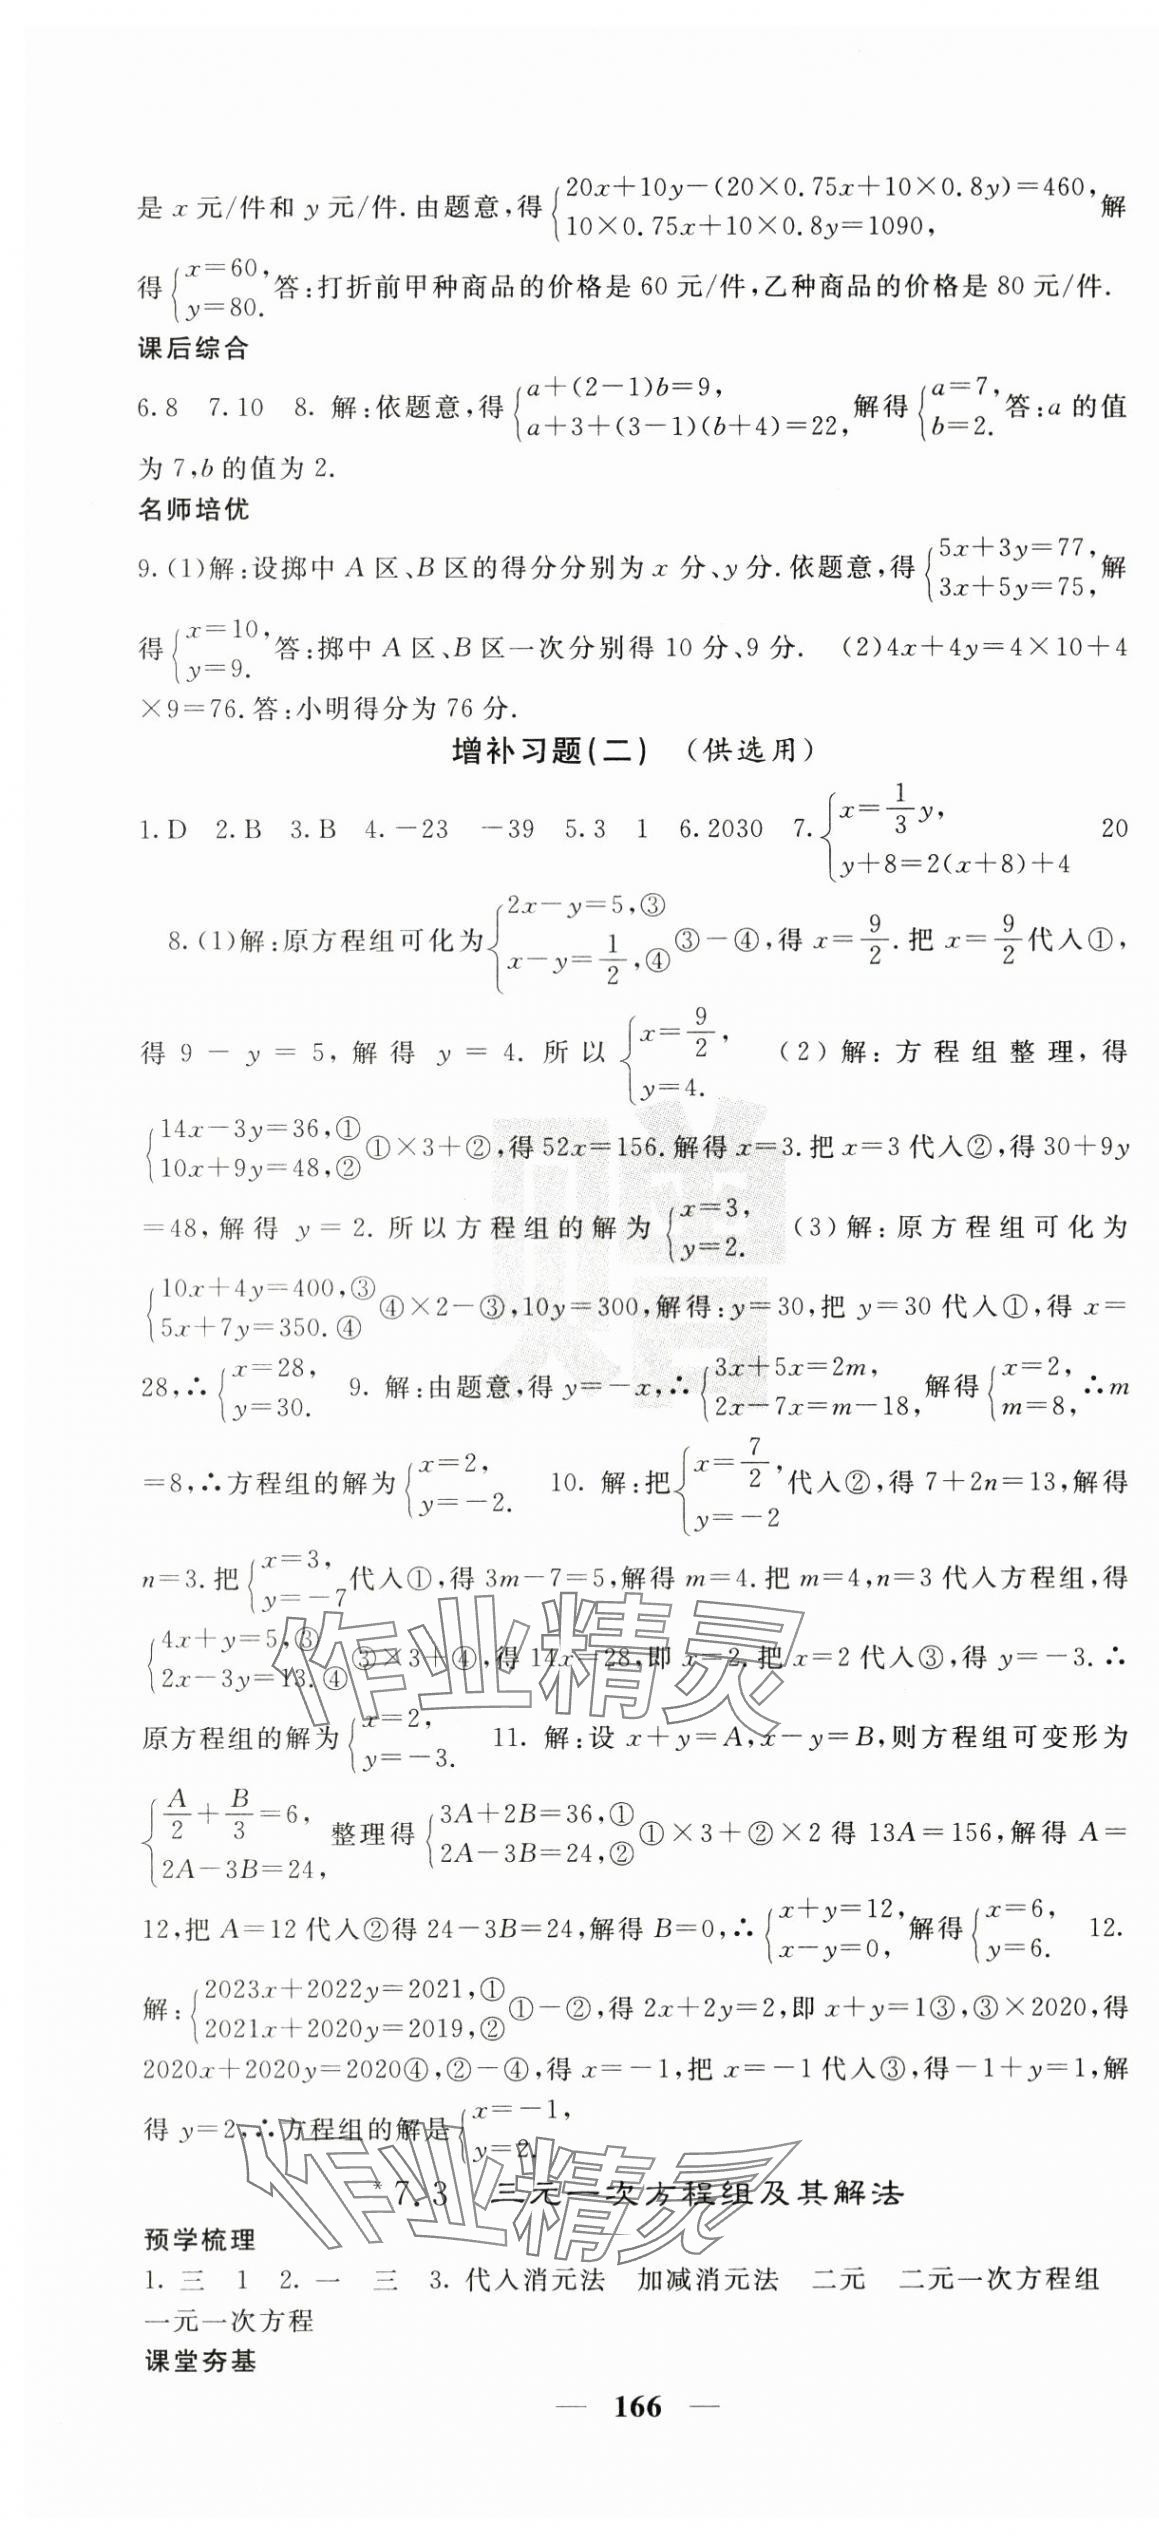 是 x 元/件和 y 元/件. 由题意,得{20x+10y-(20×0.75x+10×0.8y)=460, 10×0.75x+10×0.8y=1090, 解
得{x=60, y=80. 答:打折前甲种商品的价格是 60 元/件,乙种商品的价格是 80 元/件.
课后综合
6.8 7.10 8. 解:依题意,得{a+(2-1)b=9, a+3+(3-1)(b+4)=22, 解得{a=7, b=2. 答:a 的值
为 7,b 的值为 2.
名师培优
9.(1)解:设掷中 A 区、B 区的得分分别为 x 分、y 分. 依题意,得{5x+3y=77, 3x+5y=75, 解
得{x=10, y=9. 答:掷中 A 区、B 区一次分别得 10 分、9 分. (2)4x+4y=4×10+4
×9=76. 答:小明得分为 76 分.
增补习题(二) (供选用)
1.D 2.B 3.B 4.-23 -39 5.3 1 6.2030 7.{x=1/3 y, y+8=2(x+8)+4 20
8.(1)解:原方程组可化为{2x-y=5,③ x-y=1/2,④ ③-④,得 x=9/2. 把 x=9/2 代入①,
得 9-y=5,解得 y=4. 所以{x=9/2, y=4. (2)解:方程组整理,得
{14x-3y=36,① 10x+9y=48,② ①×3+②,得 52x=156. 解得 x=3. 把 x=3 代入②,得 30+9y
=48,解得 y=2. 所以方程组的解为{x=3, y=2. (3)解:原方程组可化为
{10x+4y=400,③ 5x+7y=350.④ ④×2-③,10y=300,解得:y=30,把 y=30 代入①,得 x=
28,∴{x=28, y=30. 9. 解:由题意,得 y=-x,∴{3x+5x=2m, 2x-7x=m-18, 解得{x=2, m=8, ∴m
=8,∴方程组的解为{x=2, y=-2. 10. 解:把{x=7/2, y=-2 代入②,得 7+2n=13,解得
n=3. 把{x=3, y=-7 代入①,得 3m-7=5,解得 m=4. 把 m=4,n=3 代入方程组,得
{4x+y=5,③ 2x-3y=13.④ ③×3+④,得 14x=28,即 x=2. 把 x=2 代入③,得 y=-3. ∴
原方程组的解为{x=2, y=-3. 11. 解:设 x+y=A,x-y=B,则方程组可变形为
{A/2+B/3=6, 2A-3B=24, 整理得{3A+2B=36,① 2A-3B=24,② ①×3+②×2 得 13A=156,解得 A=
12,把 A=12 代入②得 24-3B=24,解得 B=0,∴{x+y=12, x-y=0, 解得{x=6, y=6. 12.
解:{2023x+2022y=2021,① 2021x+2020y=2019,② ①-②,得 2x+2y=2,即 x+y=1③,③×2020,得
2020x+2020y=2020④,②-④,得 x=-1,把 x=-1 代入③,得-1+y=1,解
得 y=2,∴方程组的解是{x=-1, y=2.
*7.3 三元一次方程组及其解法
预学梳理
1. 三 1 2. 一 三 3. 代入消元法 加减消元法 二元 二元一次方程组
一元一次方程
课堂夯基
— 166 —
作业精灵
作业精灵
赠